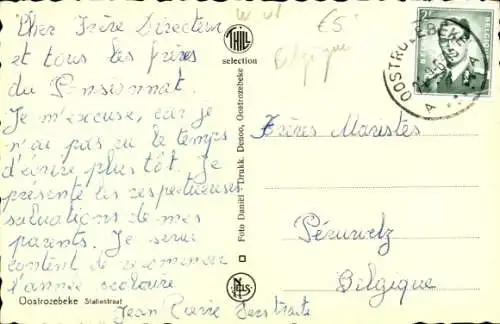 Cher Frère Directeur
et tous les frères
du Pensionnat.
Je m'excuse, car je
n'ai pas eu le temps
d'écrire plus tôt. Je
présente les respectueuses
salutations de mes
parents. Je serai
content de recommencer
l'année scolaire
Jean Pierre
Oostrozebeke Stationstraat
THILL
selection
Foto Daniël Drukk. Denoo, Oostrozebeke
NELS
€5
Belgique
OOSTROZEBEKE
A A
Frères Maristes
Péruwelz
Belgique